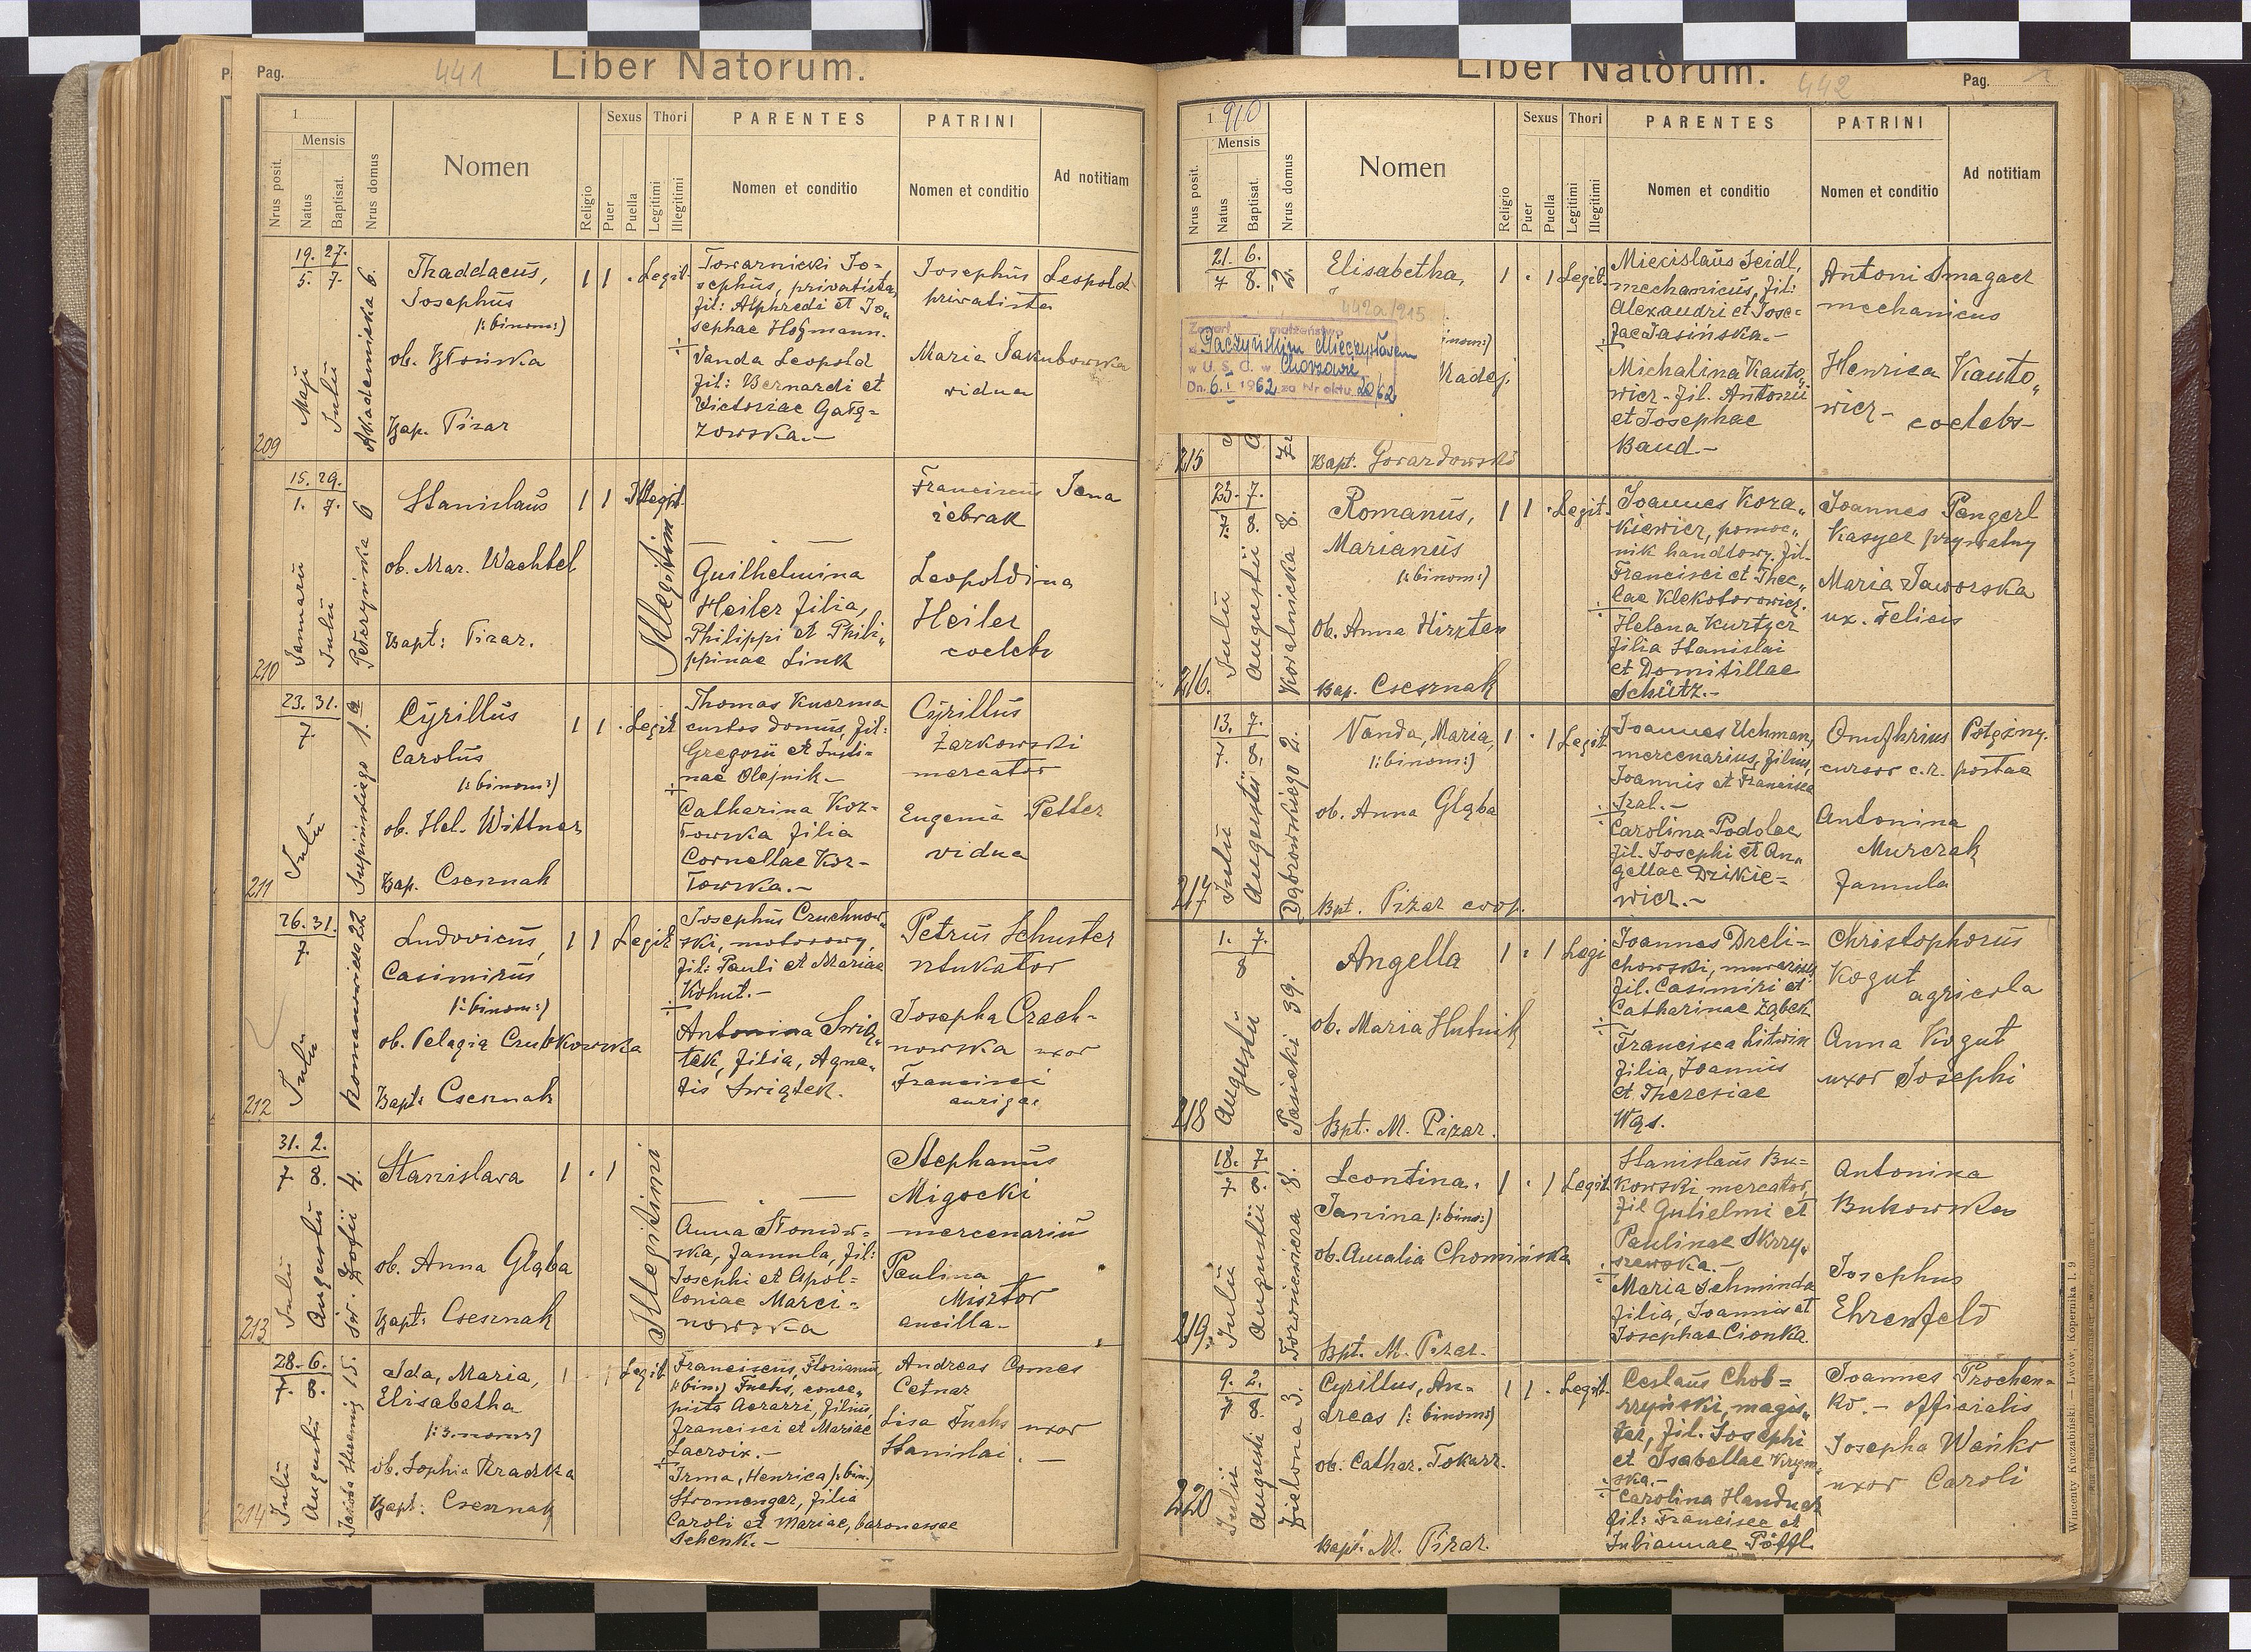 Pag.
441
Liber Natorum.
1
Nrus posit.
Mensis
Natus
Baptisat.
Nrus domus
Nomen
Religio
Sexus
Puer
Puella
Thori
Legitimi
Illegitimi
PARENTES
Nomen et conditio
PATRINI
Nomen et conditio
Ad notitiam
209
19. 27.
5. 7.
Maji
Julii
Akademicka 6.
Thaddaeus,
Josephus
(: binom:)
ob. Błońska
Bap. Pizar
1 1 . Legit.
Towarnicki Jo=
sephus, privatista,
fil: Alphredi et Jo„
sephae Hofmann.
Vanda Leopold
fil: Bernardi et
Victoriae Gałą=
zowska.—
Josephus Leopold
privatista
Maria Jakubowska
vidua
210
15. 29.
1. 7.
Januarii
Julii
Peterynska 6
Stanislaus
ob. Mar. Wachtel
Bapt: Pizar.
1 1
Illegitimi
Guilhelmina
Heiler filia,
Philippi et Phili„
ppinae Link
Franciscus Jena
żebrak
Leopoldina
Heiler
coelebs
211
23. 31.
7.
Julii
Supinskiego 1. a
Cyrillus
Carolus
(: binom:)
ob. Hel. Wittner
Bap. Csesznak
1 1 . Legit
Thomas Kuczma
custos domus, fil:
Gregorii et Justi=
nae Olejnik—
Catharina Koz=
łowska filia
Cornellae Koz=
łowska.—
Cyrillus
Żarkowski
mercator
Eugenia Petter
vidua
212
26. 31.
7
Julii
Romanowicza 22
Ludovicus,
Casimirus
(: binom:)
ob. Pelagia Czubkowska
Bapt: Csesznak
1 1 Legit
Josephus Czuchnow„
ski, motorowy,
fil: Pauli et Mariae
Kohut.—
Antonina Swią„
tek, filia, Agne„
tis Swiątek.
Petrus Schuster
stukator
Josepha Czach-
nowska uxor
Francisci
aurigae
213
31. 2.
7 8.
Julii
Augustii
św. Zofii 4.
Stanislava
ob. Anna Głąba
Bapt: Csesznak
1 . 1
Illegitimi
Anna Słoniow=
ska, famula, fil:
Josephi et Apol=
loniae Marci=
nowska
Stephanus
Migocki
mercenarius
Paulina
Misztor
ancilla—
214
28. 6.
7. 8.
Julii
Augustii
15.
Ida, Maria,
Elisabetha
(: 3. nom:)
ob. Sophia Kradka
Bapt: Csesznak
1 . 1 Legit
Franciscus, Florianus
(: bin:) Fuchs, conce„
pista Aerarii, filius,
Francisci et Mariae
Lacroix.—
Irma, Henrica (: bin:)
Stromenger, filia
Caroli et Mariae, baronessae
Schenk.—
Andreas Comes
Cetnar
Lisa Fuchs uxor
Stanislai.—
Liber Natorum.
442
Pag.
1
1 910
Nrus posit.
Mensis
Natus
Baptisat.
Nrus domus
Nomen
Religio
Sexus
Puer
Puella
Thori
Legitimi
Illegitimi
PARENTES
Nomen et conditio
PATRINI
Nomen et conditio
Ad notitiam
215
21. 6.
7 8.
2.
Elisabetha,
442a/215
Zawarł małżeństwo
z Paczyńskim Mieczysławem
w U. S. C. w Chorzowie
Dn. 6. I 1962 za Nr aktu 20/62
inom:)
Nadej.
Bapt. Gorazdowski
1 . 1 Legit.
Miecislaus Seidl,
mechanicus, fil:
Alexandri et Jose=
fae Jasińska.—
Michalina Kanto„
wicz- fil. Antonii
et Josephae
Baud.—
Antoni Smagacz
mechanicus
Henrica Kanto„
wicz- coelebs—
216.
23. 7.
7. 8.
Julii
Augustii
Kowalnicka 8.
Romanus,
Marianus
(: binom:)
ob. Anna Hirzten
Bap. Csesznak
1 1 . Legit.
Joannes Koza„
kiewicz, pomoc„
nik handlowy, fil-
Francisci et Thec„
lae Klekotorowicz.
Helena Kurtzer
filia Stanislai
et Domitillae
Schütz.—
Joannes Pengerl
Kasyer prywatny
Maria Jaworska
ux. Felicis
217
13. 7.
7. 8
Julii
Augustii
Dąbrowskiego 2.
Vanda, Maria,
(: binom:)
ob. Anna Głąba
Bpt. Pizar coop.
1 . 1 Legit
Joannes Uchman,
mercenarius, filius,
Joannis et Francisca
Iral.—
Carolina Podolec
fil. Josephi et An„
gellae Dzikie=
wicz.—
Onufhrius Potężny.
cursor c.r. postae
Antonina
Murczak
famula
218
1. 7.
8
Augustii
Pasieki 39.
Angella
ob. Maria Hutnik
Bpt. M. Pizar.
1 . 1 Legi
Joannes Dreli=
chowski, murarius
fil. Casimiri et
Catharinae Ząbek
Francisca Litwin
filia, Joannis
et Theresiae
Wąs.
Christophorus
Kogut
agricola
Anna Kogut
uxor Josephi
219.
18. 7.
7 8.
Julii
Augustii
Torosiewicza 8.
Leontina.
Janina (: bino:)
ob. Amalia Chomińska
Bpt. M. Pizar.
1 . 1 Legit
Stanislaus Bu=
kowski, mercator,
fil Gulielmi et
Paulinae Skrzy„
szewska.—
Maria Schminda
filia, Joannis et
Josephae Cionka.
Antonina
Bukowska
Josephus
Ehrenfeld
220
9. 2.
7 8.
Julii
Augusti
Zielona 3.
Cyrillus, An=
dreas (: binom:)
ob. Cathar. Tokarz.
Bapt. M. Pizar.
1 1 . Legit.
Ceslaus Chob=
rzyński, magis„
ter, fil. Josephi
et Isabellae Krym„
ska.—
Carolina Handuch
fil: Francisce et
Juliannae Pöffl.
Joannes Prochen=
ko.— officialis
Josepha Wańko
uxor Caroli
Wincenty Kuczabiński. — Lwów, Kopernika l. 9